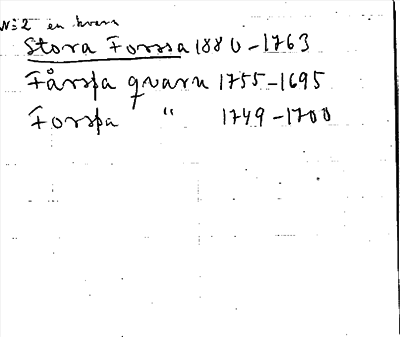 N=2 en kvarn
Stora Forssa 1880-1763
Fårssa quarn 1755-1695
Forssa " 1749-1700